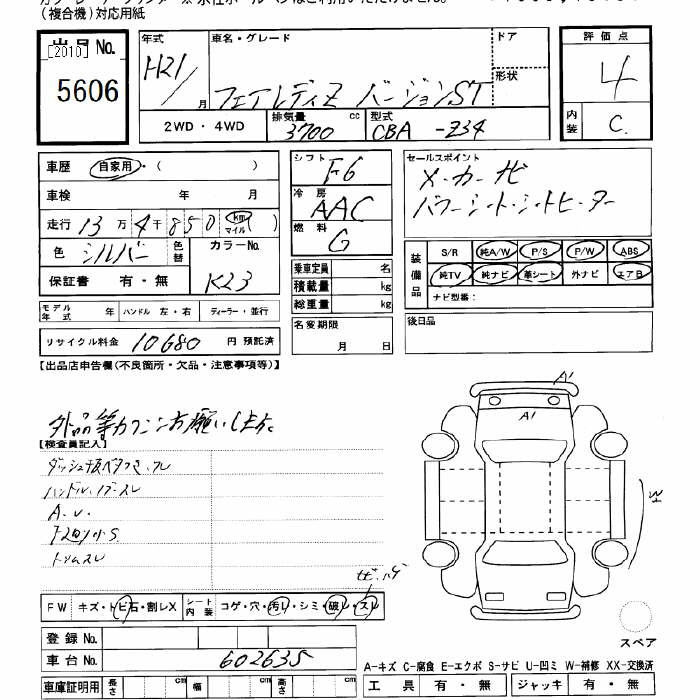 (複合機)対応用紙
出品 No.
[2010]
5606
年式
H21/
月
車名・グレード
フェアレディZ バージョンST
ドア
形状
2WD・4WD
排気量
3700
cc
型式
CBA -Z34
評価点
4
内装
C.
車歴
自家用・( )
車検 年 月
走行 13 万 4 千 850 km マイル ( )
色
シルバー
色替
カラーNo.
K23
保証書 有・無
モデル年式 年
ハンドル 左・右
ディーラー・並行
リサイクル料金 10680 円 預託済
シフト
F6
冷房
AAC
燃料
G
乗車定員 名
積載量 kg
総重量 kg
名変期限
月 日
セールスポイント
メーカーナビ
パワーシート・シートヒーター
装備品
S/R
純A/W
P/S
P/W
ABS
純TV
純ナビ
革シート
外ナビ
エアB
ナビ型番:
後日品
【出品店申告欄(不良箇所・欠品・注意事項等)】
外品等カクニンお願いします。
【検査員記入】
ダッシュ板ベタつき、スレ
ハンドル、ノブースレ
A.U.
トリムスレ
FW キズ・トビ石・割レX
シート内装
コゲ・穴・汚レ・シミ・破レ・スレ
登録 No.
車台 No.
602635
車庫証明用
長さ cm
幅 cm
高さ cm
A'
A1
W
スペア
A-キズ C-腐食 E-エクボ S-サビ U-凹ミ W-補修 XX-交換済
工具 有・無
ジャッキ 有・無